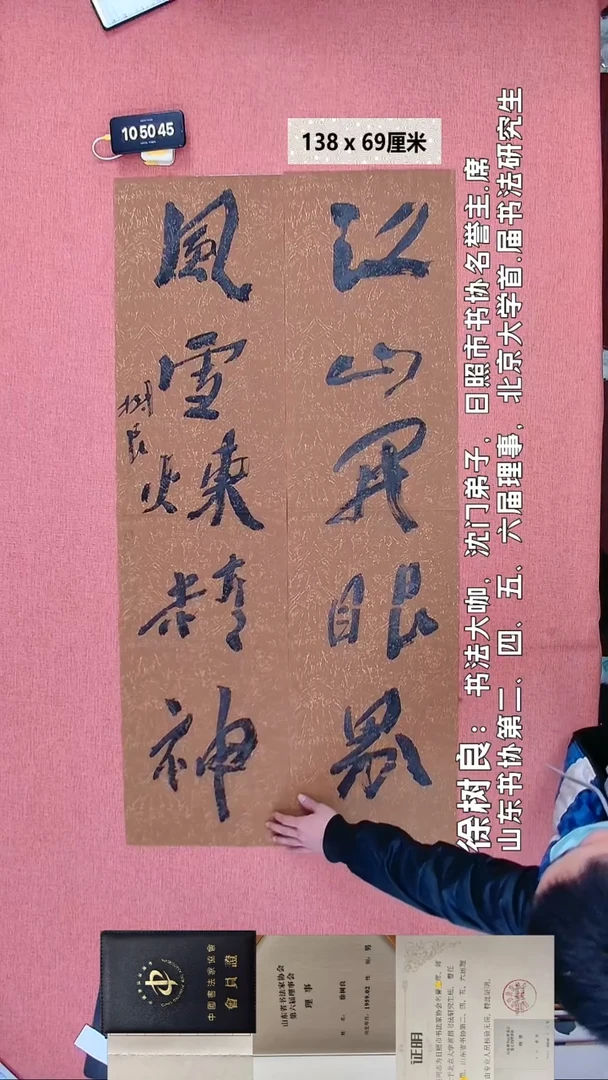 10 50 45
138 x 69厘米
江山开眼界
風雪炼精神
树良
徐树良：书法大咖，沈门弟子，日照市书协名誉主.席
山东书协第二、四、五、六届理事，北京大学首.届书法研究生
中國書法家協會
會員證
山东省书法家协会
第六届理事会
理事
徐树良
男
证明